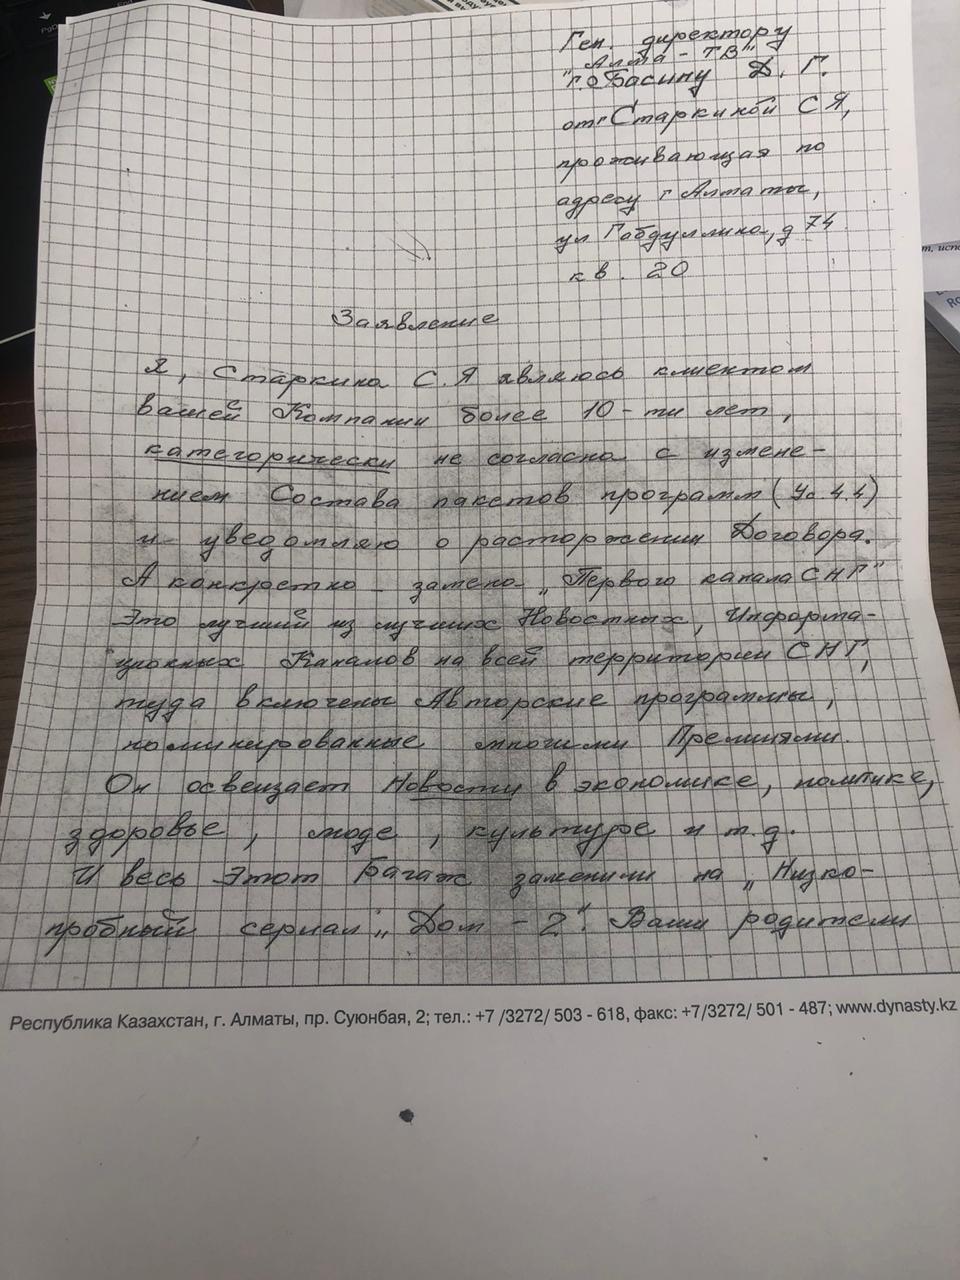 Ген. директору
"Алма-ТВ"
г. Басину Д. Г.
от Старкиной С Я,
проживающая по
адресу г Алматы,
ул Габдуллина, д 74
кв. 20
Заявление
Я, Старкина С. Я являюсь клиентом
вашей Компании более 10-ти лет,
категорически не согласна с измене-
нием Состава пакетов программ ( 4.4)
и уведомляю о расторжении Договора.
А конкретно - замена „Первого канала СНГ"
Это лучший из лучших Новостных, Информа-
ционных Каналов на всей территории СНГ,
туда включены Авторские программы,
номинированные многими Премиями.
Он освещает Новости в экономике, политике,
здоровье, моде, культуре и т.д.
И весь Этот Багаж заменили на „Низко-
пробный сериал „Дом - 2". Ваши родители
Республика Казахстан, г. Алматы, пр. Суюнбая, 2; тел.: +7 /3272/ 503 - 618, факс: +7/3272/ 501 - 487; www.dynasty.kz